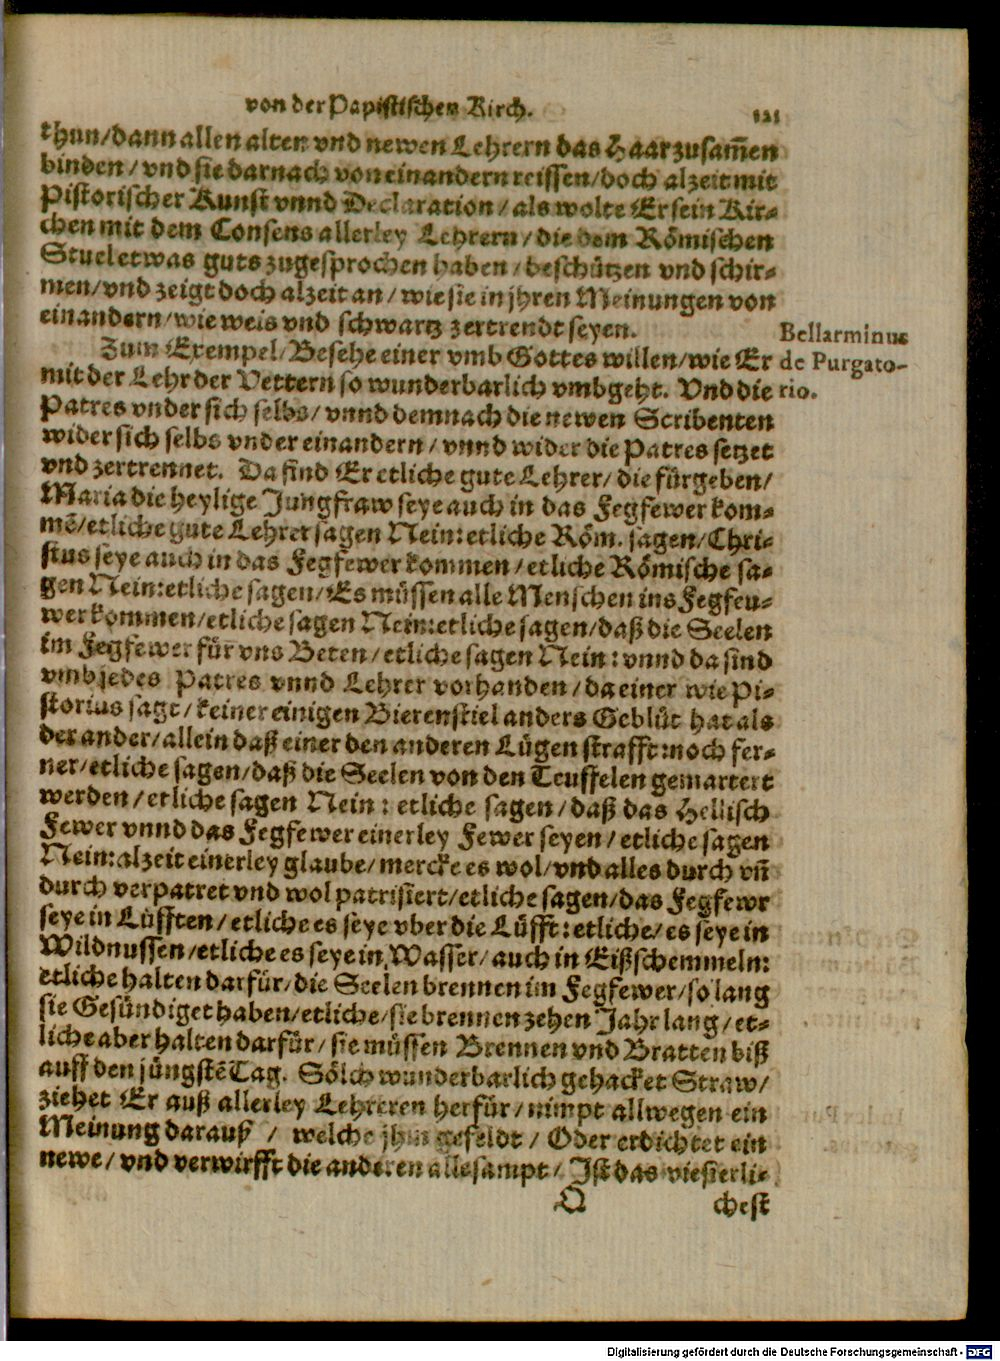 von der Papistischen Kirch. 121
thun/dann allen alten vnd newen Lehrern das Haar zusam̃en
binden/vnd sie darnach von einandern reissen/doch alzeit mit
Pistorischer Kunst vnnd Declaration/als wolte Er sein Kir-
chen mit dem Consens allerley Lehrern/die dem Römischen
Stuel etwas guts zugesprochen haben/beschützen vnd schir-
men/vnd zeigt doch alzeit an/wie sie in jhren Meinungen von
einandern/wie weis vnd schwartz zertrendt seyen.
Zum Exempel/Besehe einer vmb Gottes willen/wie Er
mit der Lehr der Vettern so wunderbarlich vmbgeht. Vnd die
Bellarminus
de Purgato-
rio.
Patres vnder sich selbs/vnnd demnach die newen Scribenten
wider sich selbs vnder einandern/vnnd wider die Patres setzet
vnd zertrennet. Da find Er etliche gute Lehrer/die fürgeben/
Maria die heylige Jungfraw seye auch in das Fegfewer kom-
mẽ/etliche gute Lehrer sagen Nein: etliche Röm. sagen/Chri-
stus seye auch in das Fegfewer kommen/etliche Römische sa-
gen Nein: etliche sagen/Es müssen alle Menschen ins Fegfeu-
wer kommen/etliche sagen Nein: etliche sagen/daß die Seelen
im Fegfewer für vns Beten/etliche sagen Nein: vnnd da sind
vmb jedes Patres vnnd Lehrer vorhanden/da einer wie Pi-
storius sagt/keiner einigen Bierenstiel anders Geblüt hat als
der ander/allein daß einer den anderen Lügen strafft: noch fer-
ner/etliche sagen/daß die Seelen von den Teuffelen gemartert
werden/etliche sagen Nein: etliche sagen/daß das Hellisch
Fewer vnnd das Fegfewer einerley Fewer seyen/etliche sagen
Nein: alzeit einerley glaube/mercke es wol/vnd alles durch vñ
durch verpatret vnd wol patrisiert/etliche sagen/das Fegfewr
seye in Lüfften/etliche es seye vber die Lüfft: etliche/es seye in
Wildnussen/etliche es seye in Wasser/auch in Eißschemmeln:
etliche halten darfür/die Seelen brennen im Fegfewer/so lang
sie Gesündiget haben/etliche/sie brennen zehen Jahr lang/et-
liche aber halten darfür/sie müssen Brennen vnd Bratten biß
auff den jüngstẽ Tag. Sölch wunderbarlich gehacket Straw/
ziehet Er auß allerley Lehreren herfür/nimpt allwegen ein
Meinung darauß/welche jhm gefeldt/Oder erdichtet ein
newe/vnd verwirfft die anderen allesampt/Ist das viesierli-
Q chest
Digitalisierung gefördert durch die Deutsche Forschungsgemeinschaft - DFG